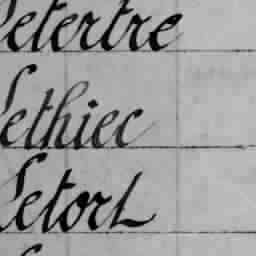 Letertre
Lethiec
Letort